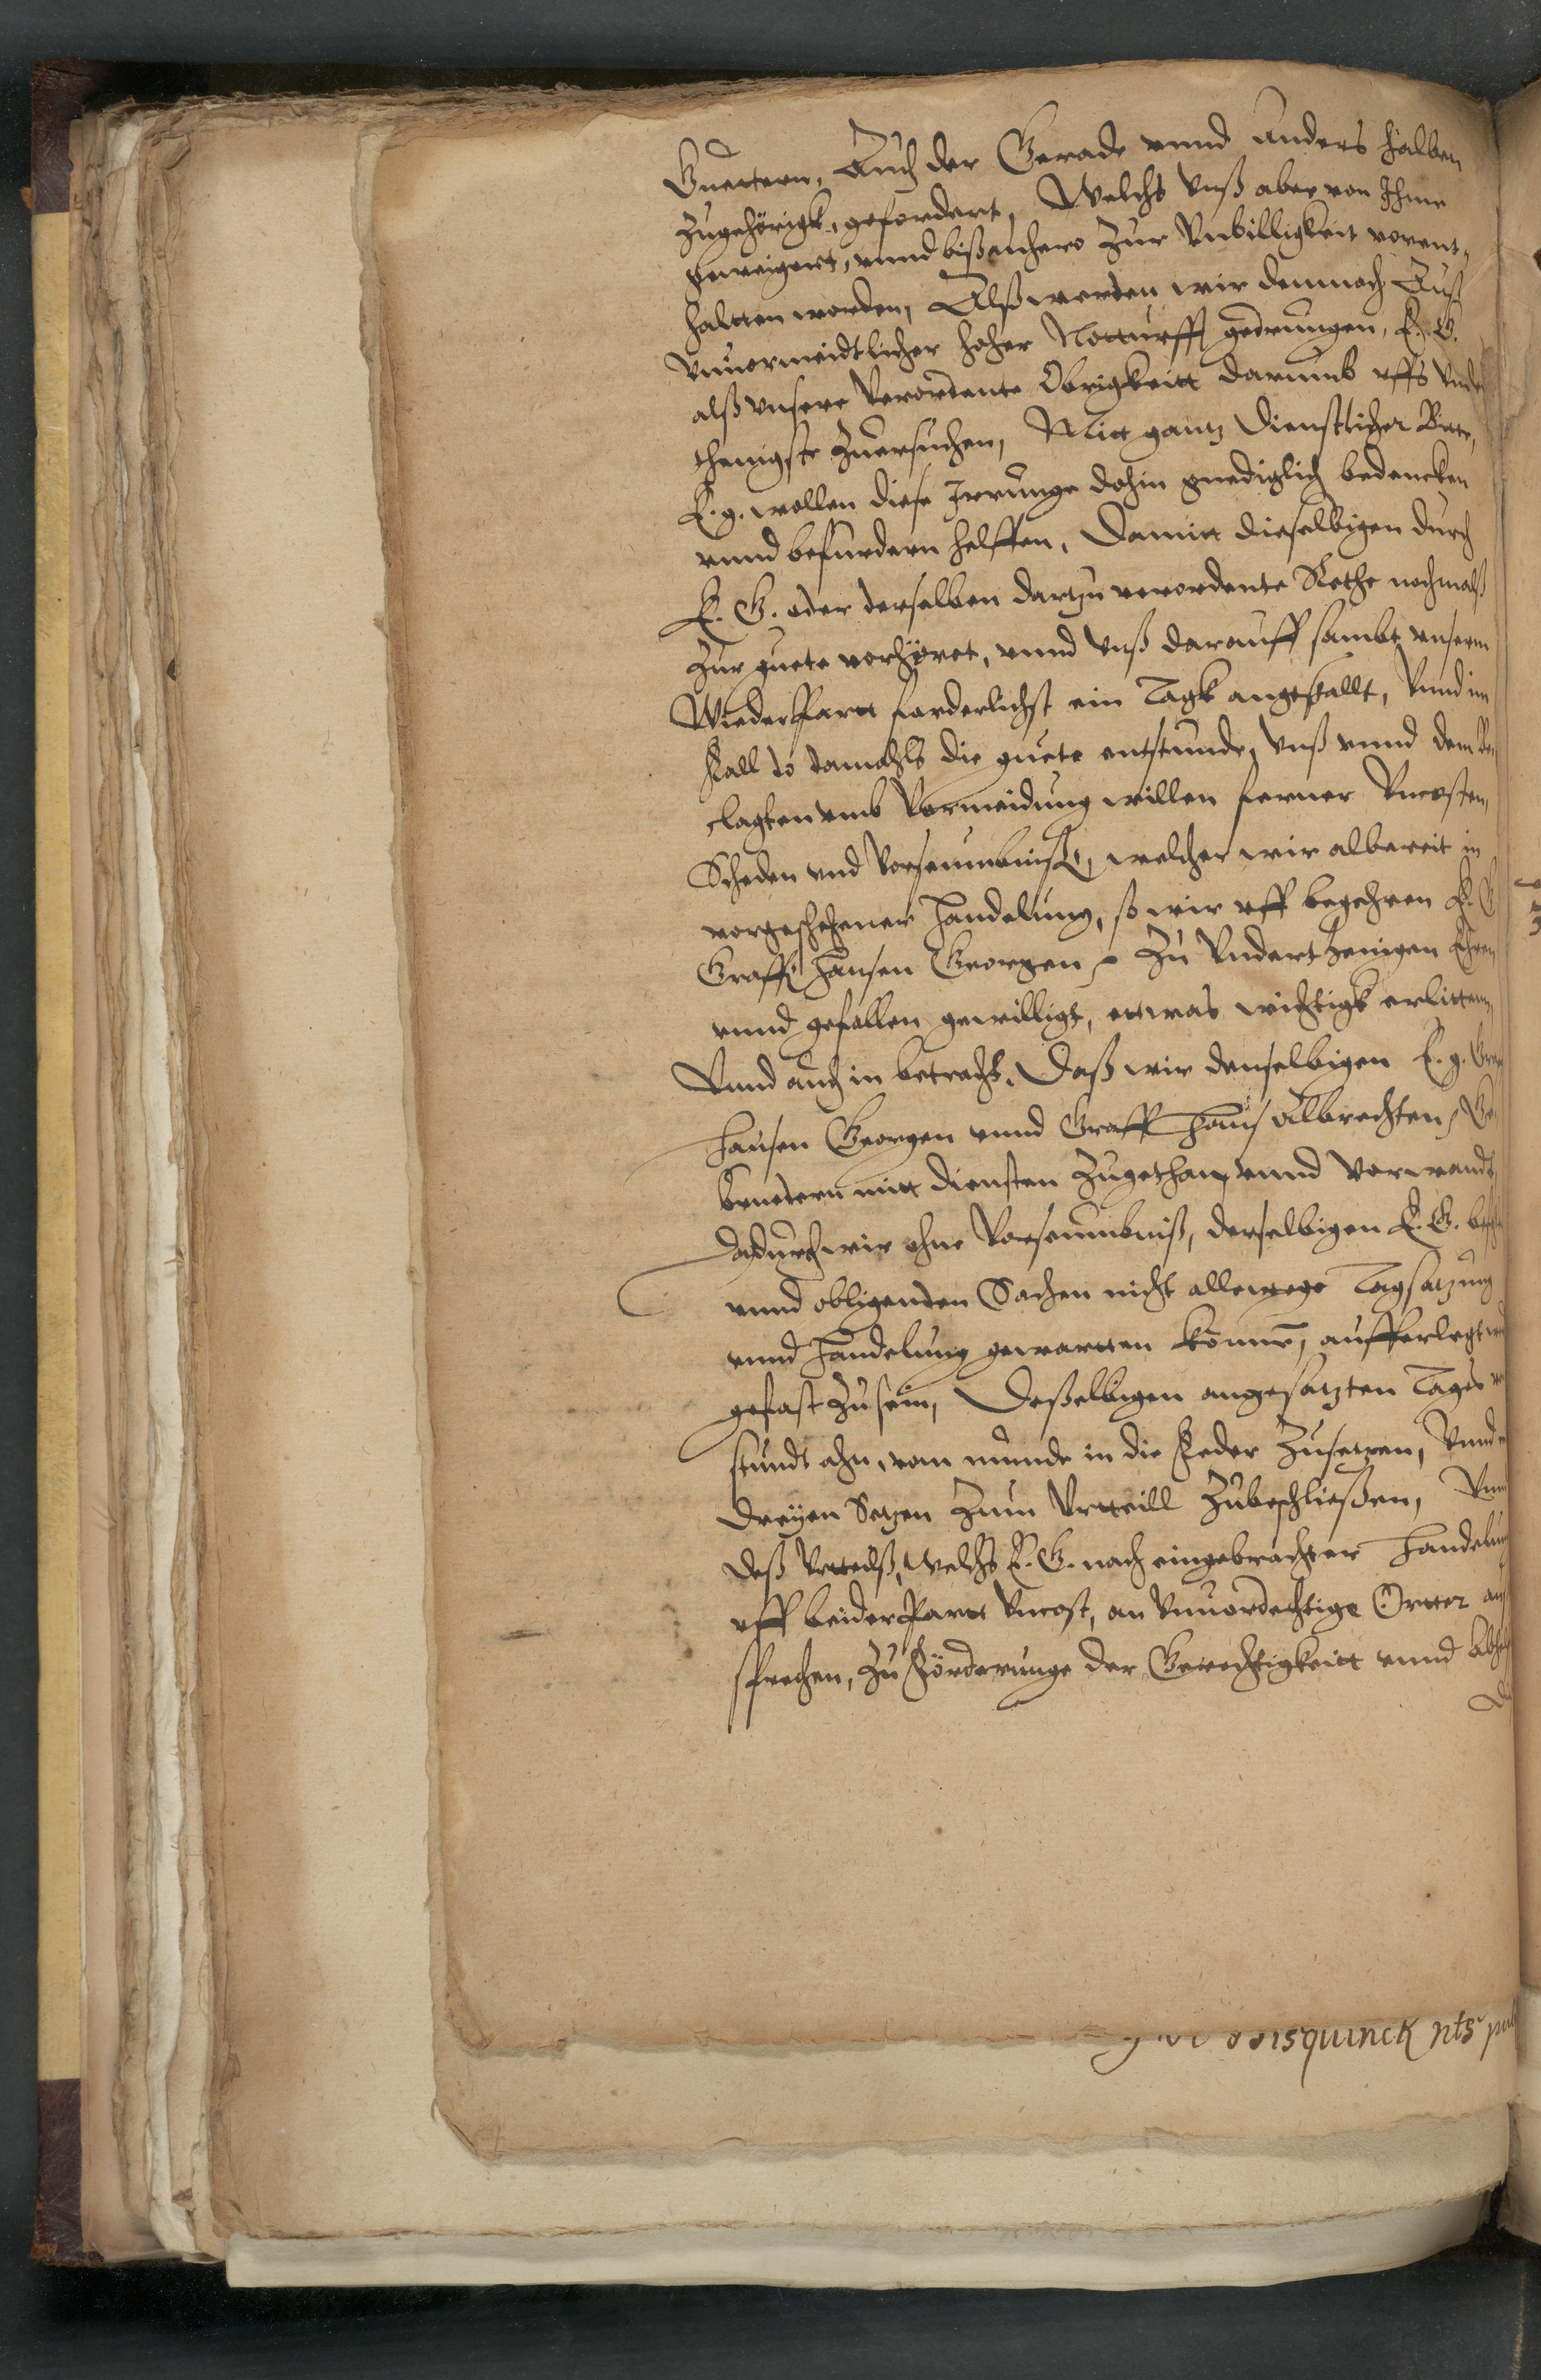 Guettern, Auch der Gerade vnnd anders halben
zugehörigk, gefordert, Welchs vnß aber von Ihme
geweigert, vnnd bißanhero zur Vnbilligkeit vorent,
haltten worden, Alß werden wir demnach Auß
vnuormeidtlicher hoher Notturfft gedrungen, E. G.
alß vnsere verordente Obrigkeitt darumb vffs vnder
thenigste zuersuchen, Mitt gantz dienstlicher Bitte,
E. g. wollen diese Irrunge dohin gnediglich bedencken
vnnd befurdern helffen, Damitt dieselbigen durch
E. G. oder derselben dartzu verordente Rethe nochmalß
zur guete verhöret, vnnd vnß darauff sambt vnserm
Wiederpartt forderlichst ein Tagk angestallt, Vnnd im
Fall do damahls die guete entstunde, vnß vnnd dem Be,
clagten vmb Vormeidung willen ferner Vncosten,
Scheden vnd Vorseumbnis, welcher wir albereit in
vorgeschehener Handelung, so wir vff begehren E. G
Graff Hansen Georgen zu Vnderthenigen Ehren
vnnd gefallen gewilligt, ettwas wichtigk erlitten,
Vnnd auch in betracht, Daß wir denselbigen E. g.
Hansen Georgen vnnd Graff Hans Albrechten, Ge,
bruedern mitt diensten zugethan, vnnd vorwandt,
Dadurch wir ohne Vorseumbniß, derselbigen E. G.
vnnd obligenden Sachen nicht allewege Tagsatzung
vnnd Handelung gewartten können, aufferlegt
gefast zusein, Deßelbigen angesatzten Tages
stundt ahn, vom munde in die Feder zusetzen, Vnnd
dreyen Setzen zum Vrtteill zubeschließen, Vnnd
deß Vrtteilß, welchs E. G. nach eingebrachter Handelung
vff beider Partt Vncost, an vnuordechtige Ortter
sprechen, zu Förderunge der Gerechtigkeitt vnnd
isquinck nts pub